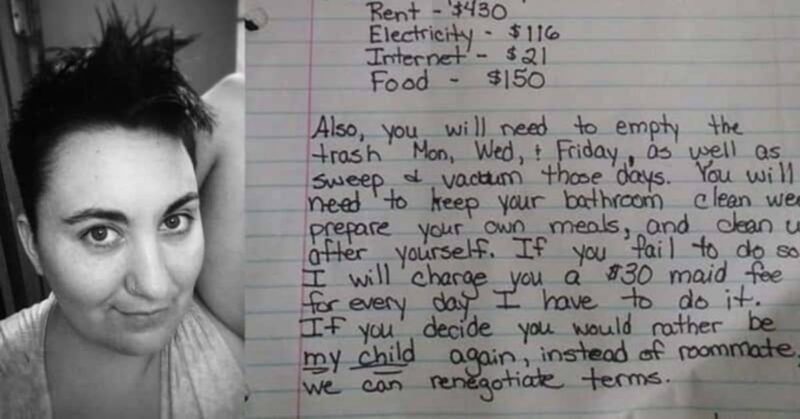 Rent - $430
Electricity - $116
Internet - $21
Food - $150
Also, you will need to empty the
trash Mon, Wed, + Friday, as well as
sweep & vacuum those days. You will
need to keep your bathroom clean
prepare your own meals, and clean
after yourself. If you fail to do so
I will charge you a $30 maid fee
for every day I have to do it.
If you decide you would rather be
my child again, instead of roommate,
we can renegotiate terms.